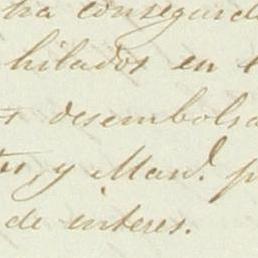 ha conseguido
hilados en
desembolsa
y Man.l
de interes.